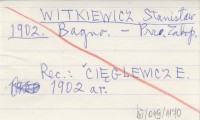 WITKIEWICZ Stanisław
1902. Bagno. – Prz. Zakop.
Rec.: CIĘGLEWICZ E.
1902 ar.